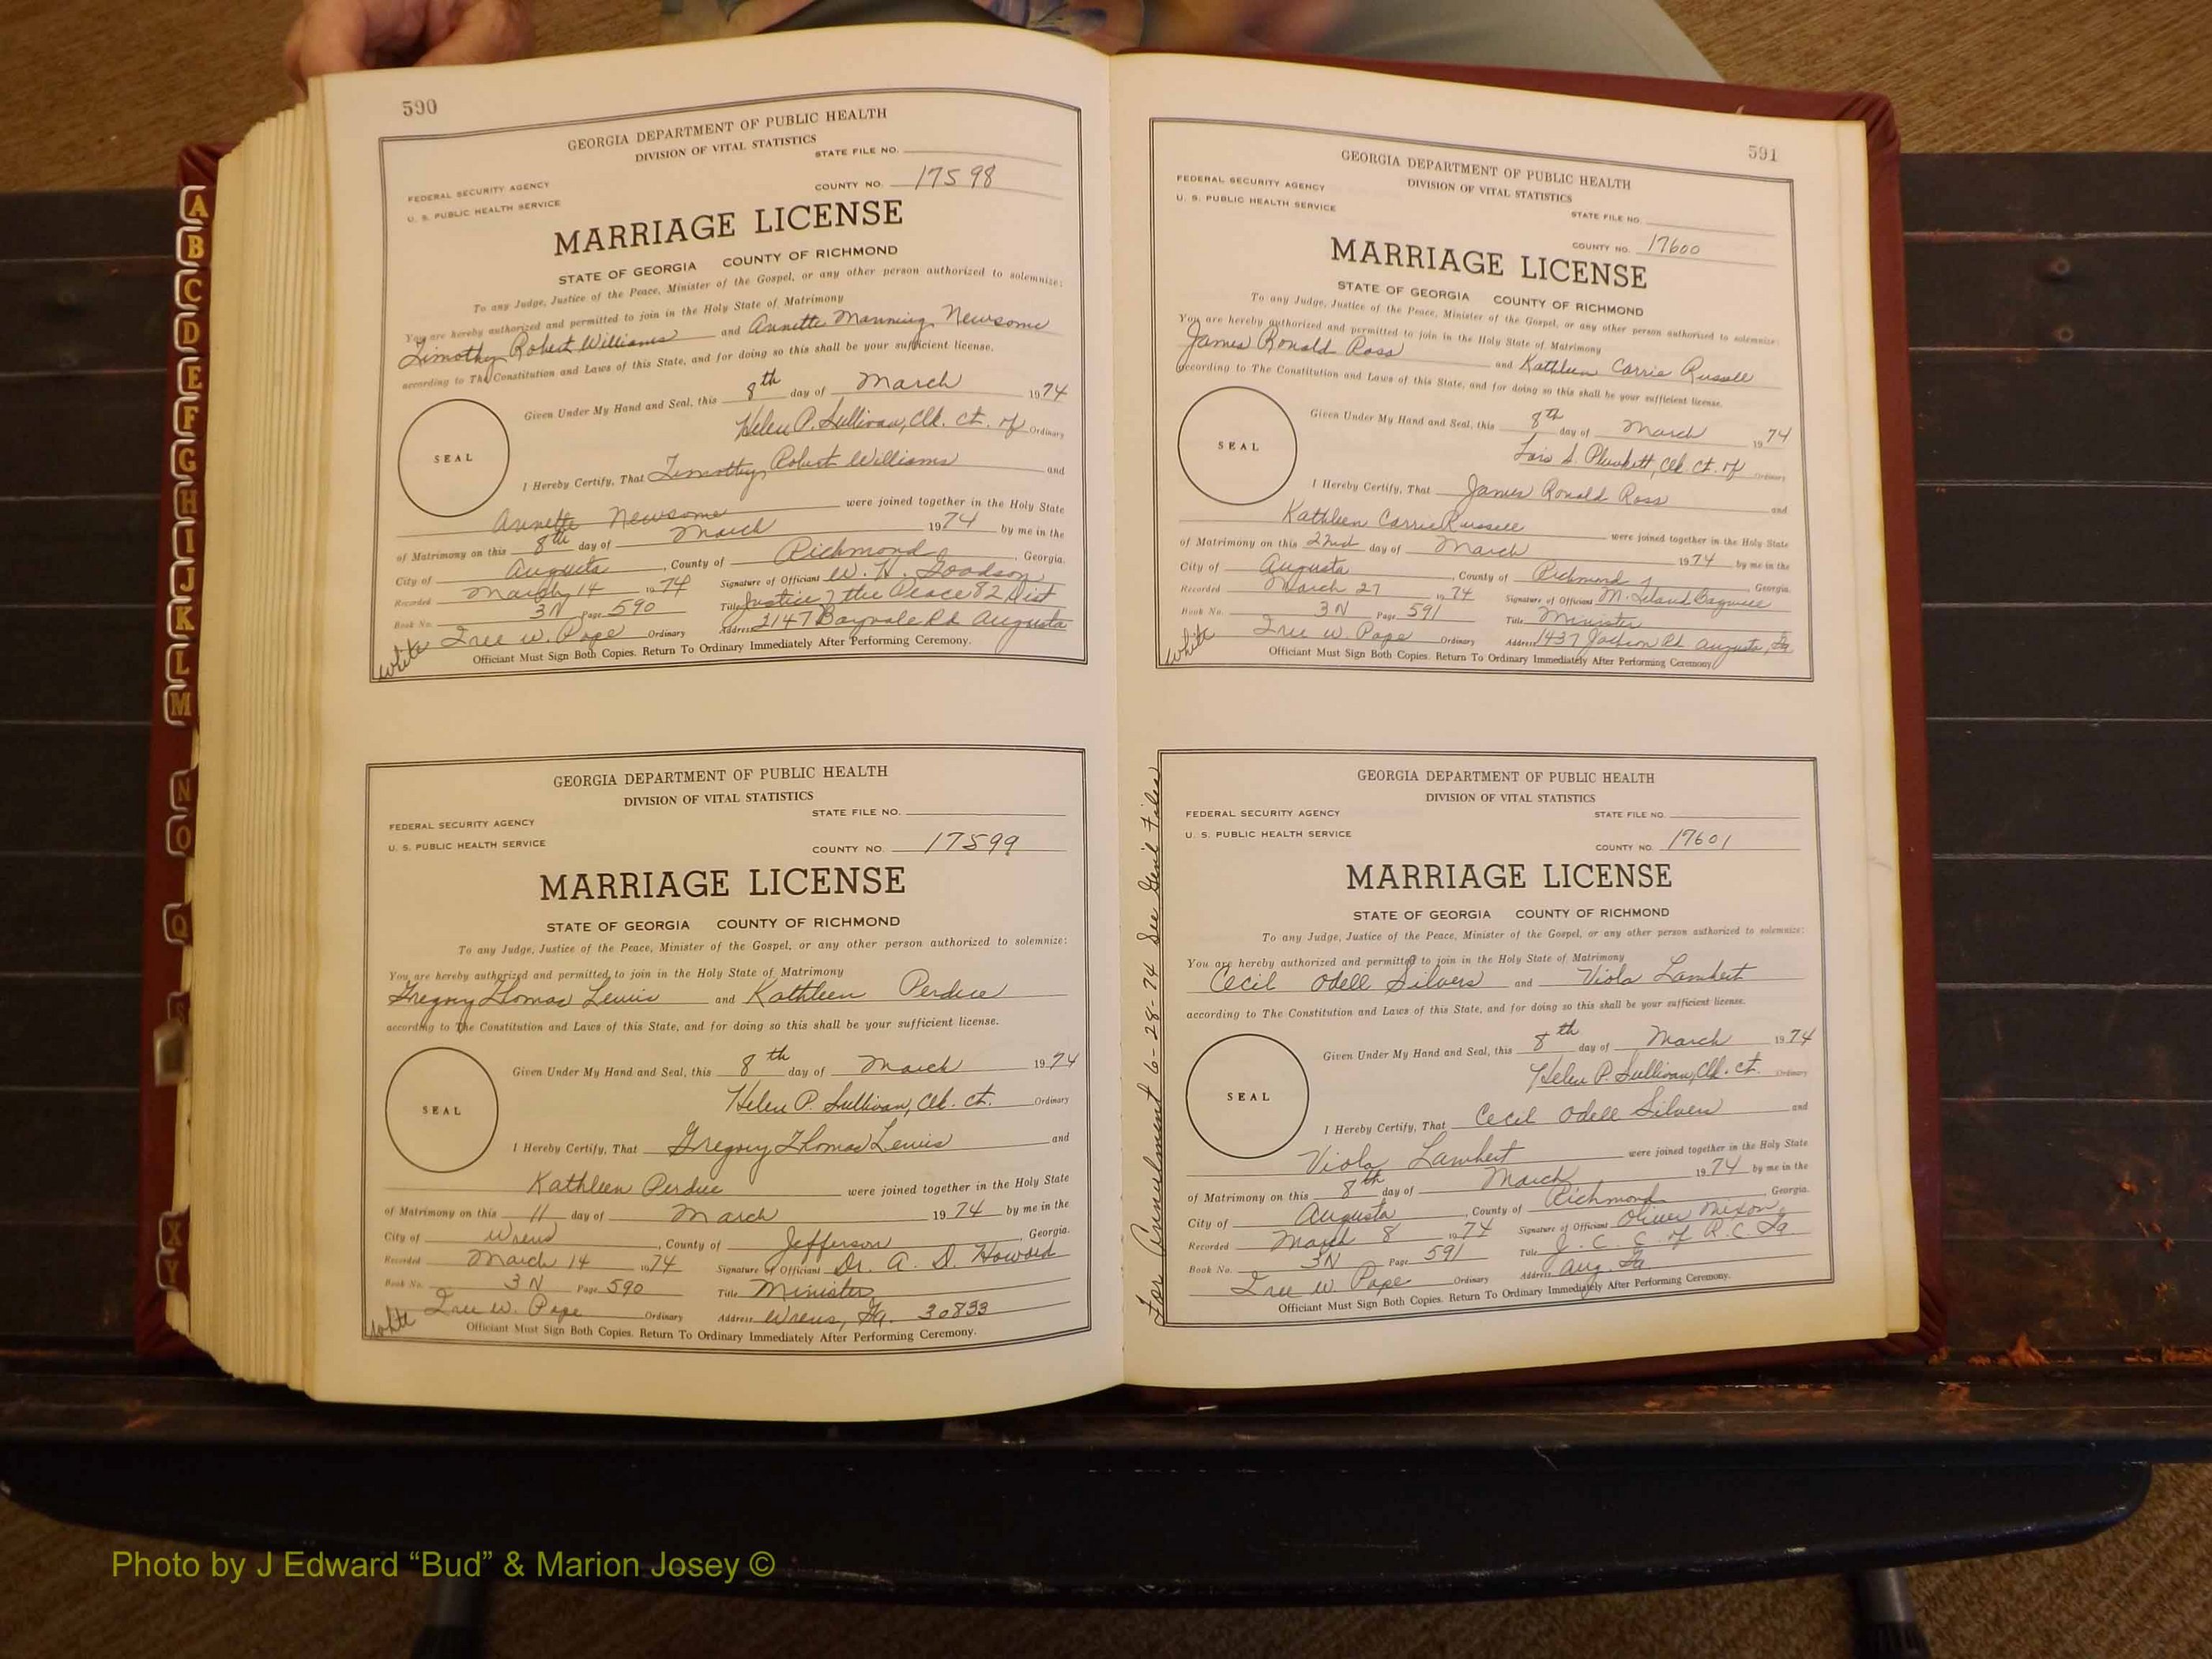 A
B
C
D
E
F
G
H
I
J
K
L
M
N
O
Q
S
X
Y
590
GEORGIA DEPARTMENT OF PUBLIC HEALTH
DIVISION OF VITAL STATISTICS
STATE FILE NO.
FEDERAL SECURITY AGENCY
U. S. PUBLIC HEALTH SERVICE
COUNTY NO. 17598
MARRIAGE LICENSE
STATE OF GEORGIA COUNTY OF RICHMOND
To any Judge, Justice of the Peace, Minister of the Gospel, or any other person authorized to solemnize:
You are hereby authorized and permitted to join in the Holy State of Matrimony
Timothy Robert Williams and Annette Manning Newsome
according to The Constitution and Laws of this State, and for doing so this shall be your sufficient license.
Given Under My Hand and Seal, this 8th day of March 1974
Helen P. Sullivan, Clk. Ct. of Ordinary
SEAL
I Hereby Certify, That Timothy Robert Williams and
Annette Newsome were joined together in the Holy State
of Matrimony on this 8th day of March 1974 by me in the
City of Augusta, County of Richmond, Georgia.
Recorded March 14 1974 Signature of Officiant W. H. Goodson
Book No. 3N Page 590 Title Justice of the Peace 82 Dist
Iree W. Pope Ordinary Address 2147 Bayvale Rd Augusta
white
Officiant Must Sign Both Copies. Return To Ordinary Immediately After Performing Ceremony.
GEORGIA DEPARTMENT OF PUBLIC HEALTH
DIVISION OF VITAL STATISTICS
STATE FILE NO.
FEDERAL SECURITY AGENCY
U. S. PUBLIC HEALTH SERVICE
COUNTY NO. 17599
MARRIAGE LICENSE
STATE OF GEORGIA COUNTY OF RICHMOND
To any Judge, Justice of the Peace, Minister of the Gospel, or any other person authorized to solemnize:
You are hereby authorized and permitted to join in the Holy State of Matrimony
Gregory Thomas Lewis and Kathleen Perdue
according to the Constitution and Laws of this State, and for doing so this shall be your sufficient license.
Given Under My Hand and Seal, this 8th day of March 1974
Helen P. Sullivan, Clk. Ct. Ordinary
SEAL
I Hereby Certify, That Gregory Thomas Lewis and
Kathleen Perdue were joined together in the Holy State
of Matrimony on this 11 day of March 1974 by me in the
City of Wrens, County of Jefferson, Georgia.
Recorded March 14 1974 Signature of Officiant Dr. A. D. Howard
Book No. 3N Page 590 Title Minister
Iree W. Pope Ordinary Address Wrens, Ga. 30833
white
Officiant Must Sign Both Copies. Return To Ordinary Immediately After Performing Ceremony.
591
GEORGIA DEPARTMENT OF PUBLIC HEALTH
DIVISION OF VITAL STATISTICS
FEDERAL SECURITY AGENCY
U. S. PUBLIC HEALTH SERVICE
STATE FILE NO.
COUNTY NO. 17600
MARRIAGE LICENSE
STATE OF GEORGIA COUNTY OF RICHMOND
To any Judge, Justice of the Peace, Minister of the Gospel, or any other person authorized to solemnize:
You are hereby authorized and permitted to join in the Holy State of Matrimony
James Ronald Ross and Kathleen Carrie Russell
according to The Constitution and Laws of this State, and for doing so this shall be your sufficient license.
Given Under My Hand and Seal, this 8th day of March 1974
Lois S. Plunkett, Clk. Ct. of Ordinary
SEAL
I Hereby Certify, That James Ronald Ross and
Kathleen Carrie Russell were joined together in the Holy State
of Matrimony on this 22nd day of March 1974 by me in the
City of Augusta, County of Richmond, Georgia.
Recorded March 27 1974 Signature of Officiant M. Leland
Book No. 3N Page 591 Title Minister
Iree W. Pope Ordinary Address 1437 Jackson Rd Augusta, Ga
white
Officiant Must Sign Both Copies. Return To Ordinary Immediately After Performing Ceremony
For Annulment 6-28-74 See Civil Files
GEORGIA DEPARTMENT OF PUBLIC HEALTH
DIVISION OF VITAL STATISTICS
FEDERAL SECURITY AGENCY
STATE FILE NO.
U. S. PUBLIC HEALTH SERVICE
COUNTY NO. 17601
MARRIAGE LICENSE
STATE OF GEORGIA COUNTY OF RICHMOND
To any Judge, Justice of the Peace, Minister of the Gospel, or any other person authorized to solemnize:
You are hereby authorized and permitted to join in the Holy State of Matrimony
Cecil Odell Silvers and Viola Lambert
according to The Constitution and Laws of this State, and for doing so this shall be your sufficient license.
Given Under My Hand and Seal, this 8th day of March 1974
Helen P. Sullivan, Clk. Ct. Ordinary
SEAL
I Hereby Certify, That Cecil Odell Silvers and
Viola Lambert were joined together in the Holy State
of Matrimony on this 8th day of March 1974 by me in the
City of Augusta, County of Richmond, Georgia.
Recorded March 8 1974 Signature of Officiant Oliver Mixon
Book No. 3N Page 591 Title J. C. C. of R. C. Ga.
Iree W. Pope Ordinary Address Aug. Ga.
Officiant Must Sign Both Copies. Return To Ordinary Immediately After Performing Ceremony.
Photo by J Edward “Bud” & Marion Josey ©